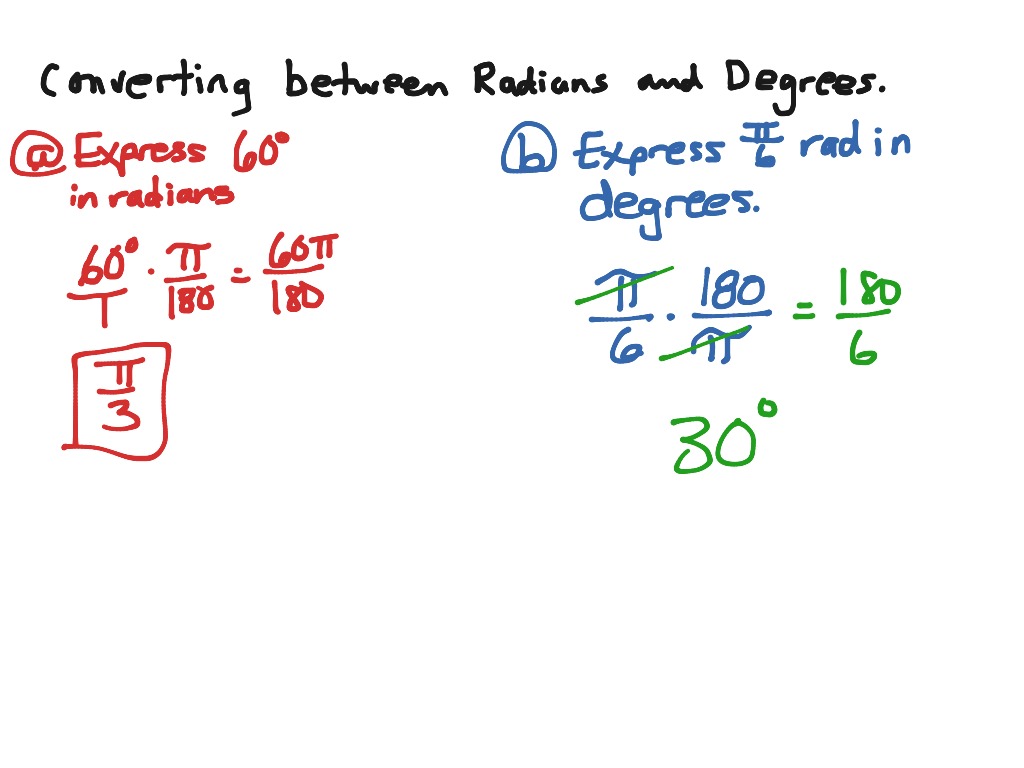 Converting between Radians and Degrees.
ⓐ Express 60°
in radians
60°/1 · π/180 = 60π/180
π/3
ⓑ Express π/6 rad in
degrees.
π/6 · 180/π = 180/6
30°